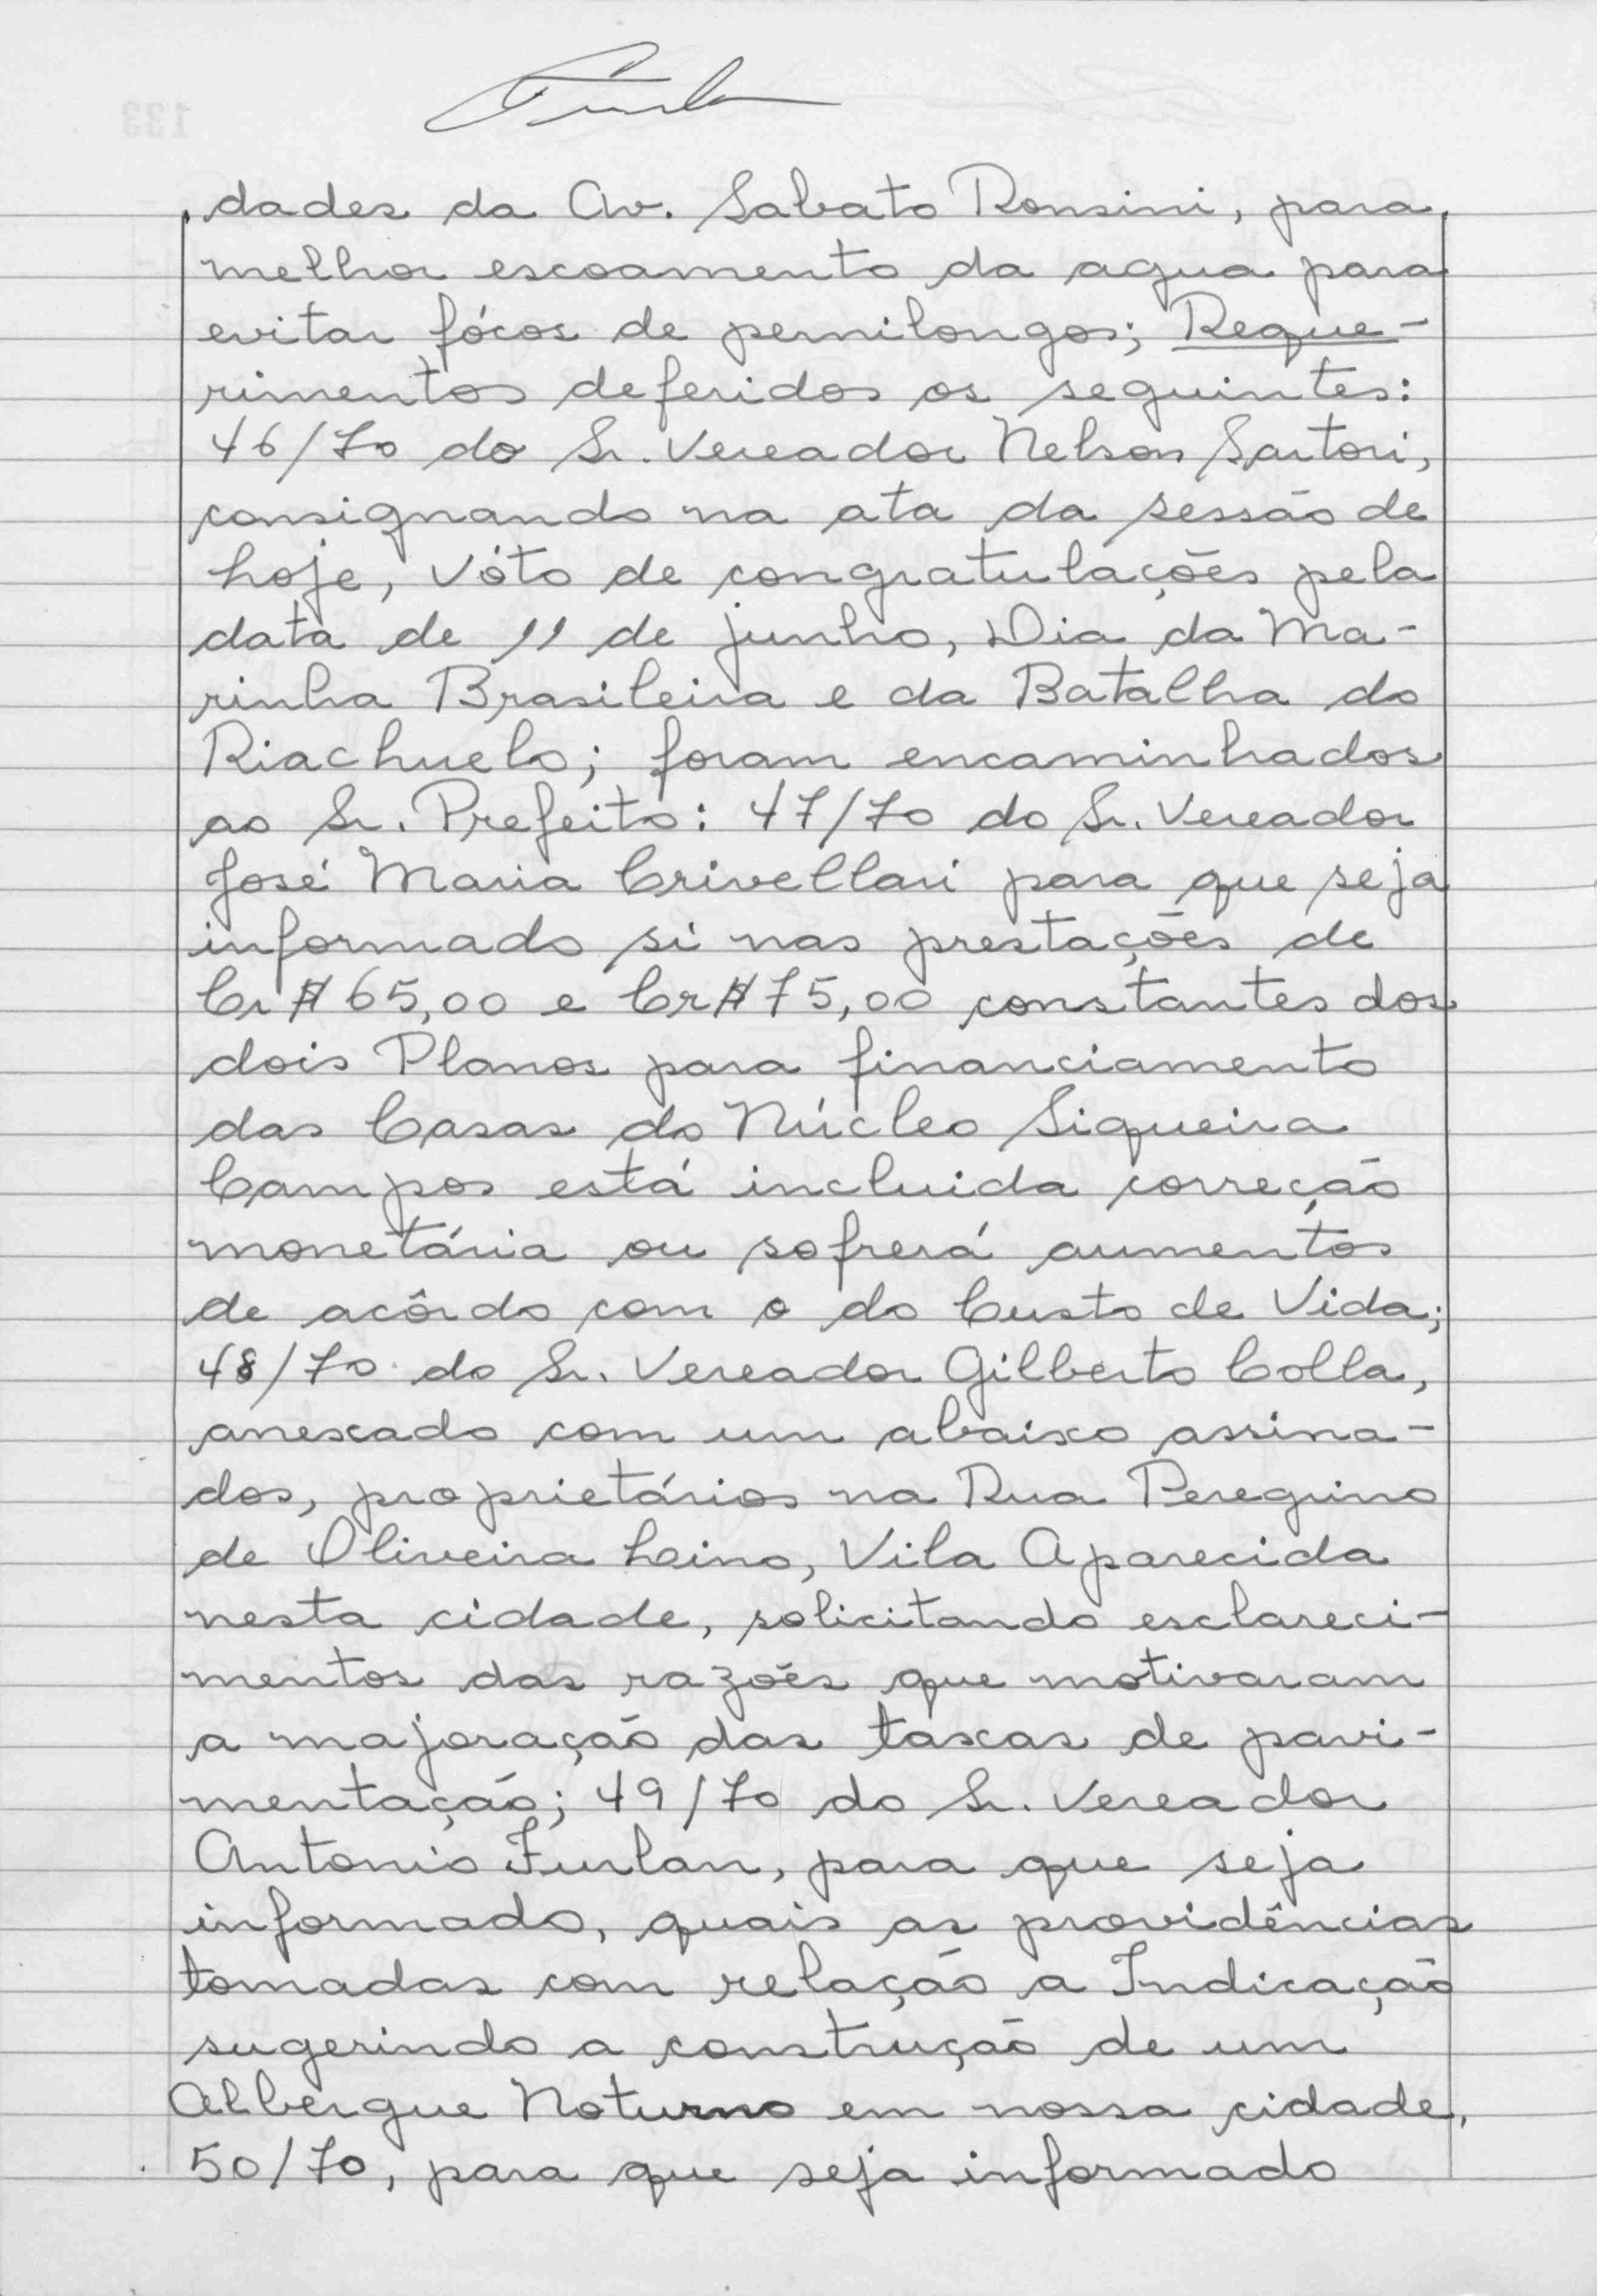 dades da Av. Sabato Ronsini, para
melhor escoamento da agua para
evitar fócos de pernilongos; Reque-
rimentos deferidos os seguintes:
46/70 do Sr. Vereador Nelson Sartori,
consignando na ata da sessão de
hoje, vóto de congratulações pela
data de 11 de junho, Dia da Ma-
rinha Brasileira e da Batalha do
Riachuelo; foram encaminhados
ao Sr. Prefeito: 47/70 do Sr. Vereador
José Maria Crivellari para que seja
informado si nas prestações de
Cr$ 65,00 e Cr$ 75,00 constantes dos
dois Planos para financiamento
das Casas do Núcleo Siqueira
Campos está incluida correção
monetária ou sofrerá aumentos
de acôrdo com o do Custo de Vida;
48/70 do Sr. Vereador Gilberto Colla,
anexado com um abaixo assina-
dos, proprietários na Rua Peregrino
de Oliveira Lino, Vila Aparecida
nesta cidade, solicitando esclareci-
mentos das razões que motivaram
a majoração das taxas de pavi-
mentação; 49/70 do Sr. Vereador
Antonio Furlan, para que seja
informado, quais as providências
tomadas com relação a Indicação
sugerindo a construção de um
Albergue Noturno em nossa cidade,
50/70, para que seja informado